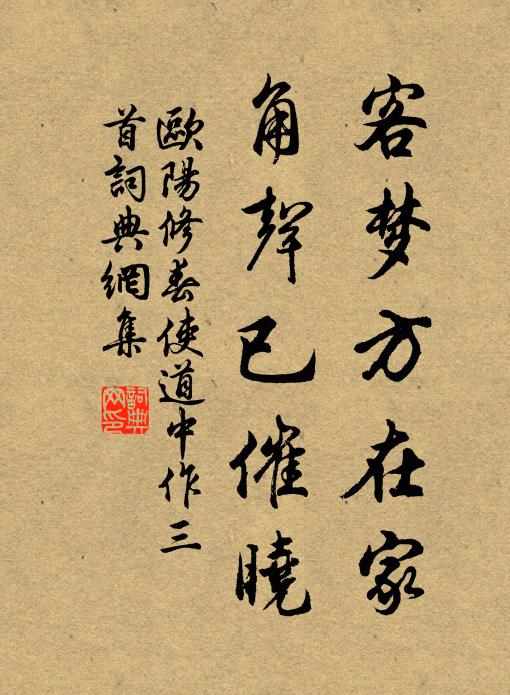 客梦方在家
角聲已催曉
歐陽修奉使道中作三
首詞典網集
詞典
网印